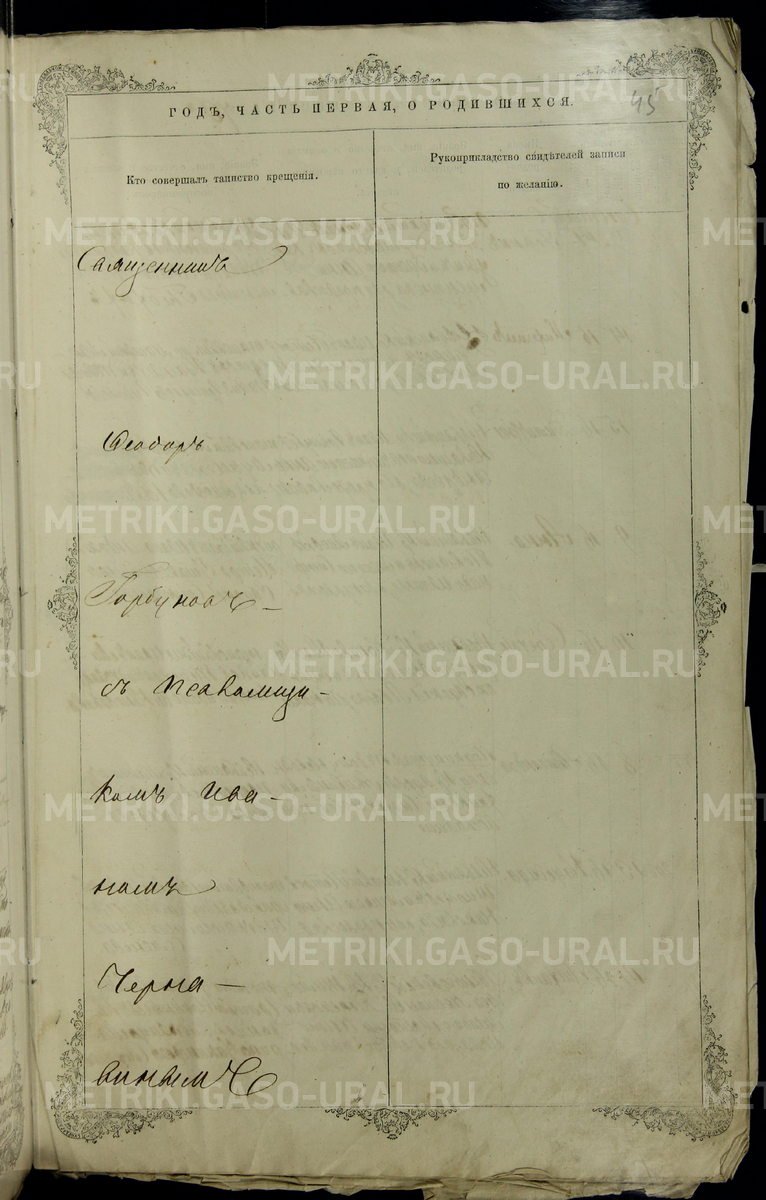 45
ГОДЪ, ЧАСТЬ ПЕРВАЯ, О РОДИВШИХСЯ.
Кто совершалъ таинство крещенія.
Рукоприкладство свидѣтелей записи
по желанію.
Священникъ
Ѳеодоръ
Горбуновъ –
съ Псаломщи –
комъ Ива –
номъ
Черна –
винымъ
METRIKI.GASO-URAL.RU